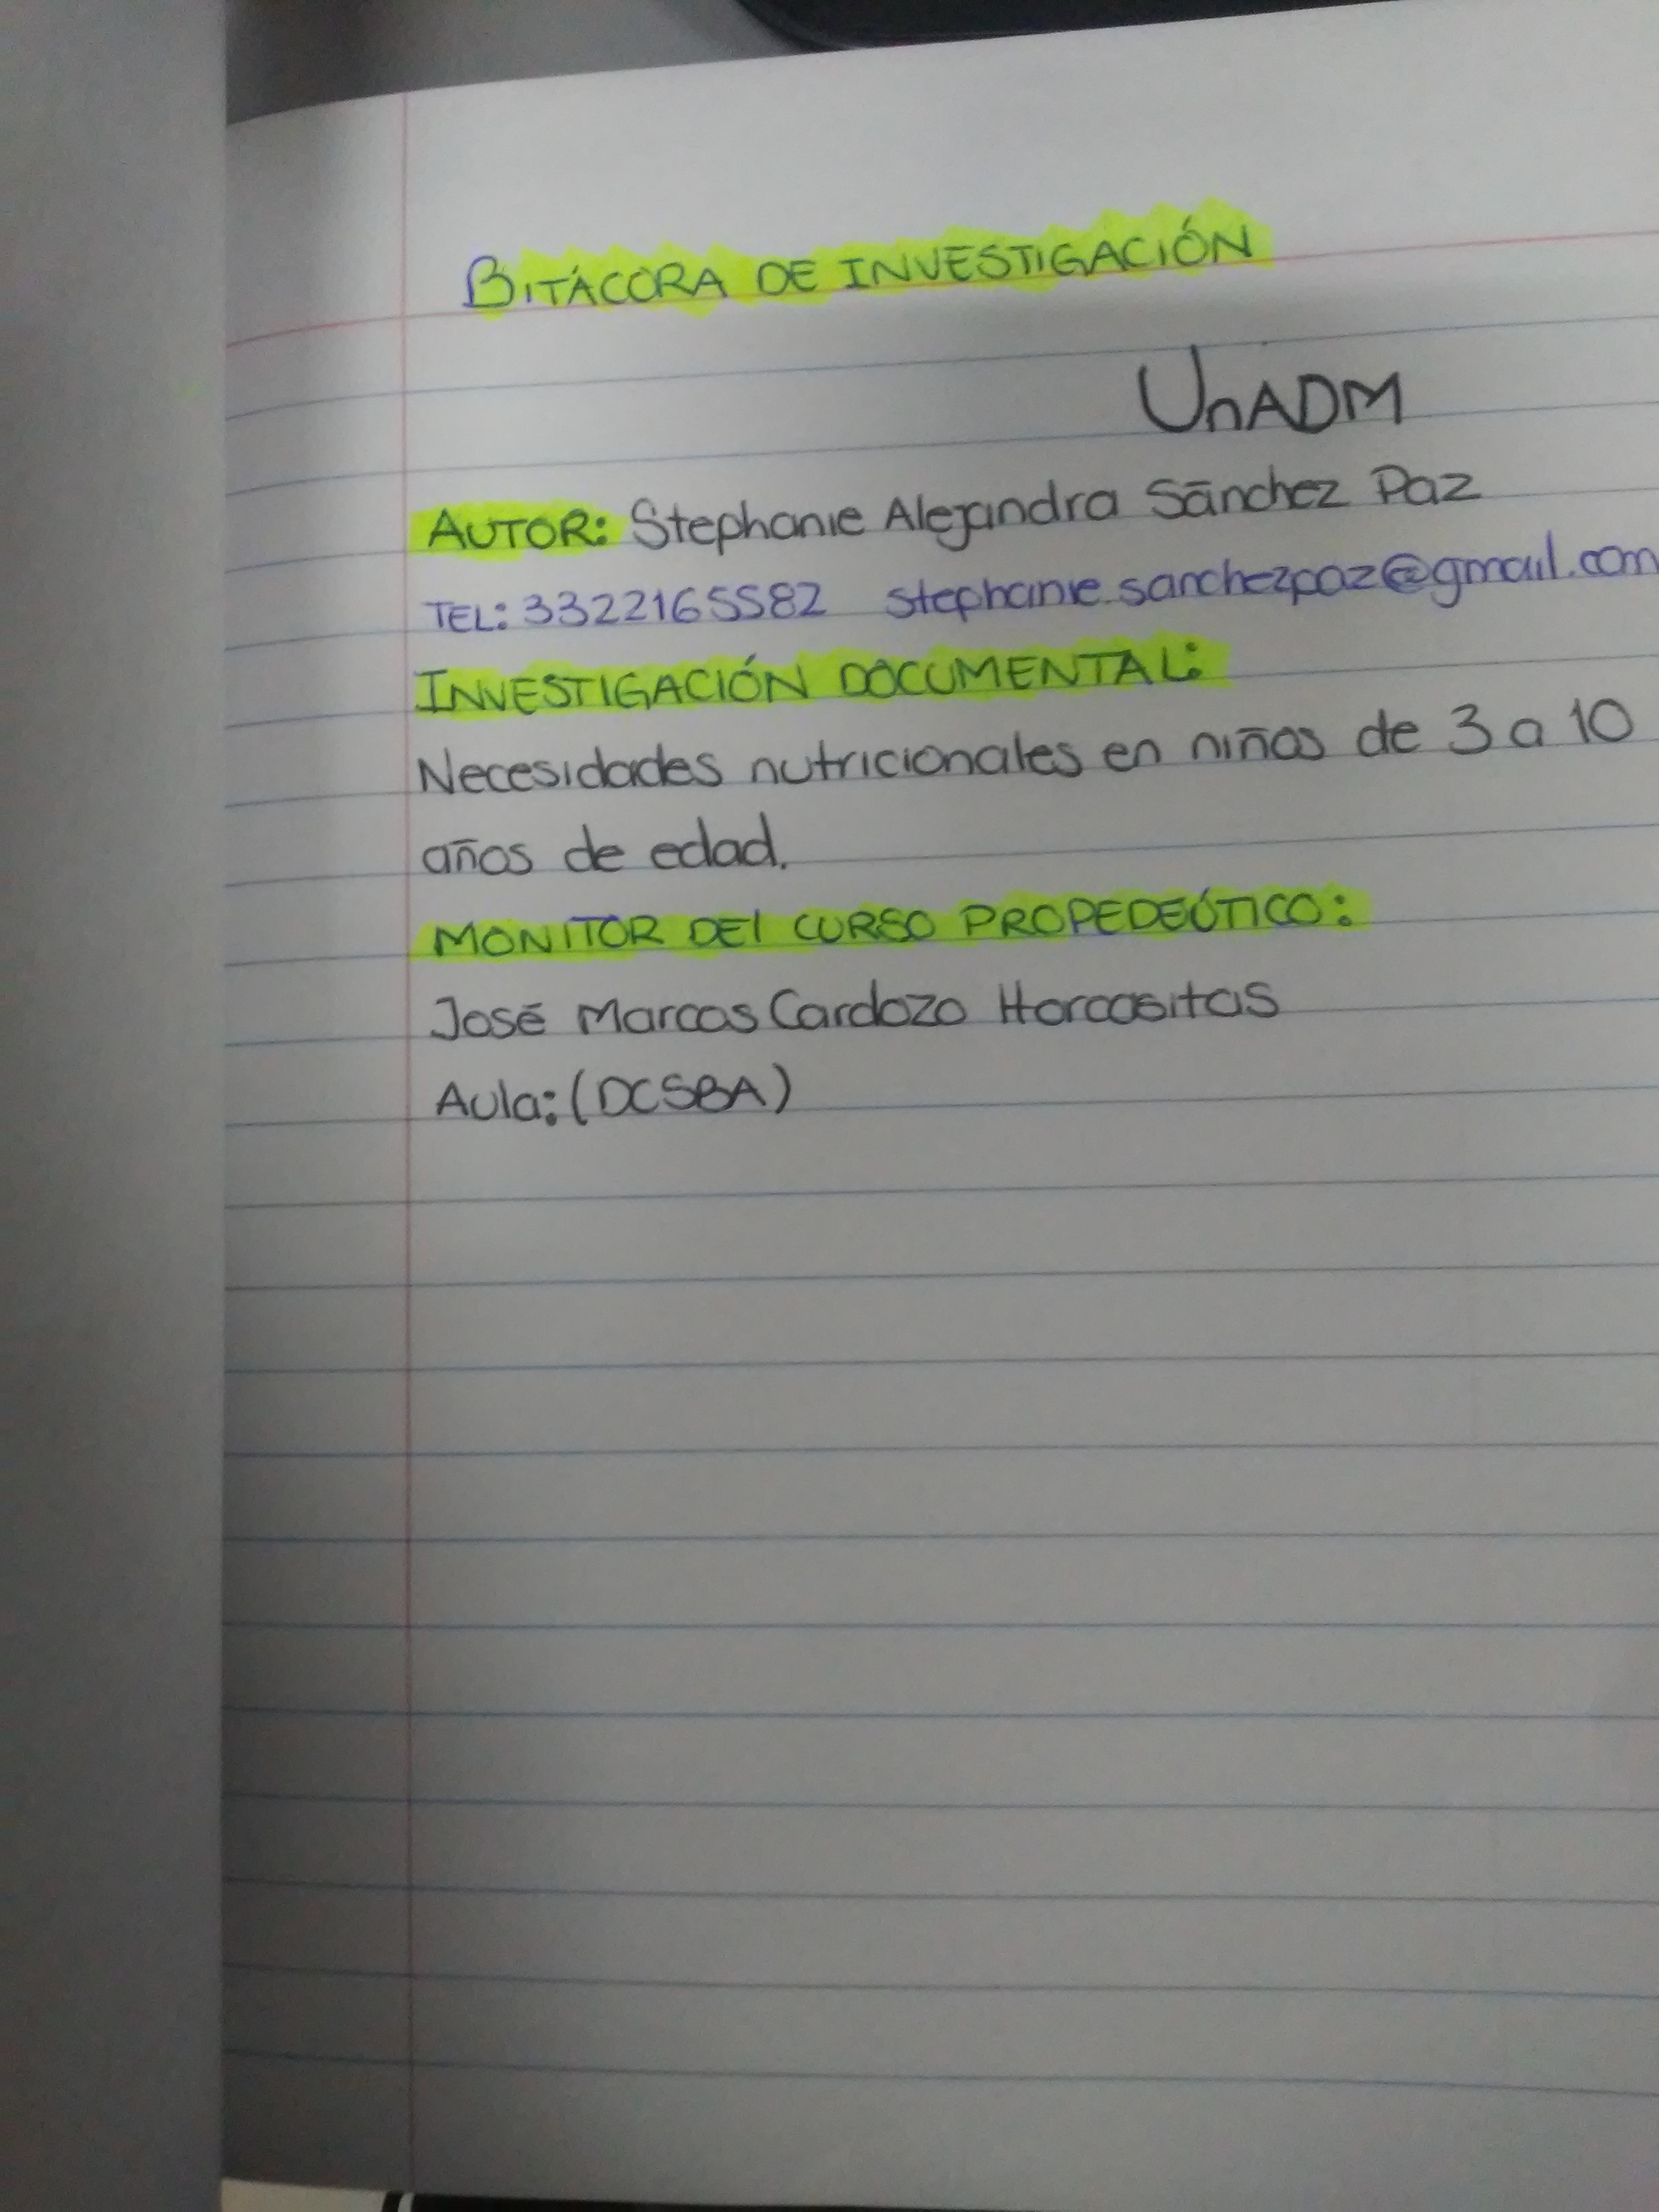 BITÁCORA DE INVESTIGACIÓN
UnADM
AUTOR: Stephanie Alejandra Sánchez Paz
TEL: 3322165582 stephanie.sanchezpaz@gmail.com
INVESTIGACIÓN DOCUMENTAL:
Necesidades nutricionales en niños de 3 a 10
años de edad.
MONITOR DEl CURSO PROPEDEÚTICO:
José Marcos Cardozo Horcasitas
Aula: (DCSBA)